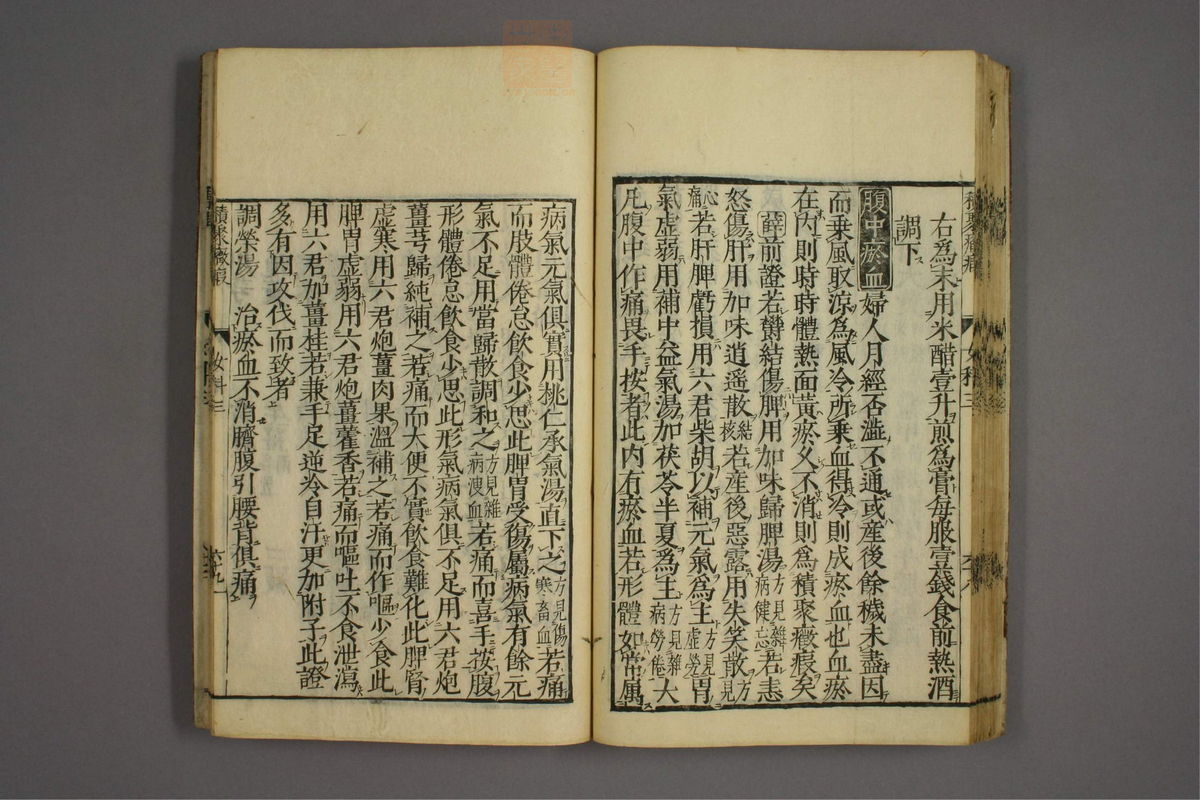 右爲末用米醋壹升煎爲膏每服壹錢食前熱酒
調下
腹中瘀血 婦人月經否澁不通或産後餘穢未盡因
而乗風取涼爲風冷所乗血得冷則成瘀血也血瘀
在内則時時體熱面黃瘀久不消則爲積聚癥瘕矣
薛前證若欝結傷脾用加味歸脾湯方見雜病健忘若恚
怒傷肝用加味逍遥散結核若産後惡露用失笑散方見
心痛若肝脾虧損用六君柴胡以補元氣爲主方見虚勞胃
氣虚弱用補中益氣湯加茯苓半夏爲主方見雜病勞倦大
凡腹中作痛畏手按者此内有瘀血若形體如常属
病氣元氣俱實用桃仁承氣湯直下之方見傷寒畜血若痛
而肢體倦怠飲食少思此脾胃受傷屬病氣有餘元
氣不足用當歸散調和之方見雜病溲血若痛而喜手按腹
形體倦怠飲食少思此形氣病氣俱不足用六君炮
薑芎歸純補之若痛而大便不實飲食難化此脾腎
虚寒用六君炮薑肉果溫補之若痛而作嘔少食此
脾胃虚弱用六君炮薑藿香若痛而嘔吐不食泄瀉
用六君加薑桂若兼手足逆冷自汗更加附子此證
多有因攻伐而致者
調榮湯 治瘀血不消臍腹引腰背俱痛
積聚癥瘕 女科三